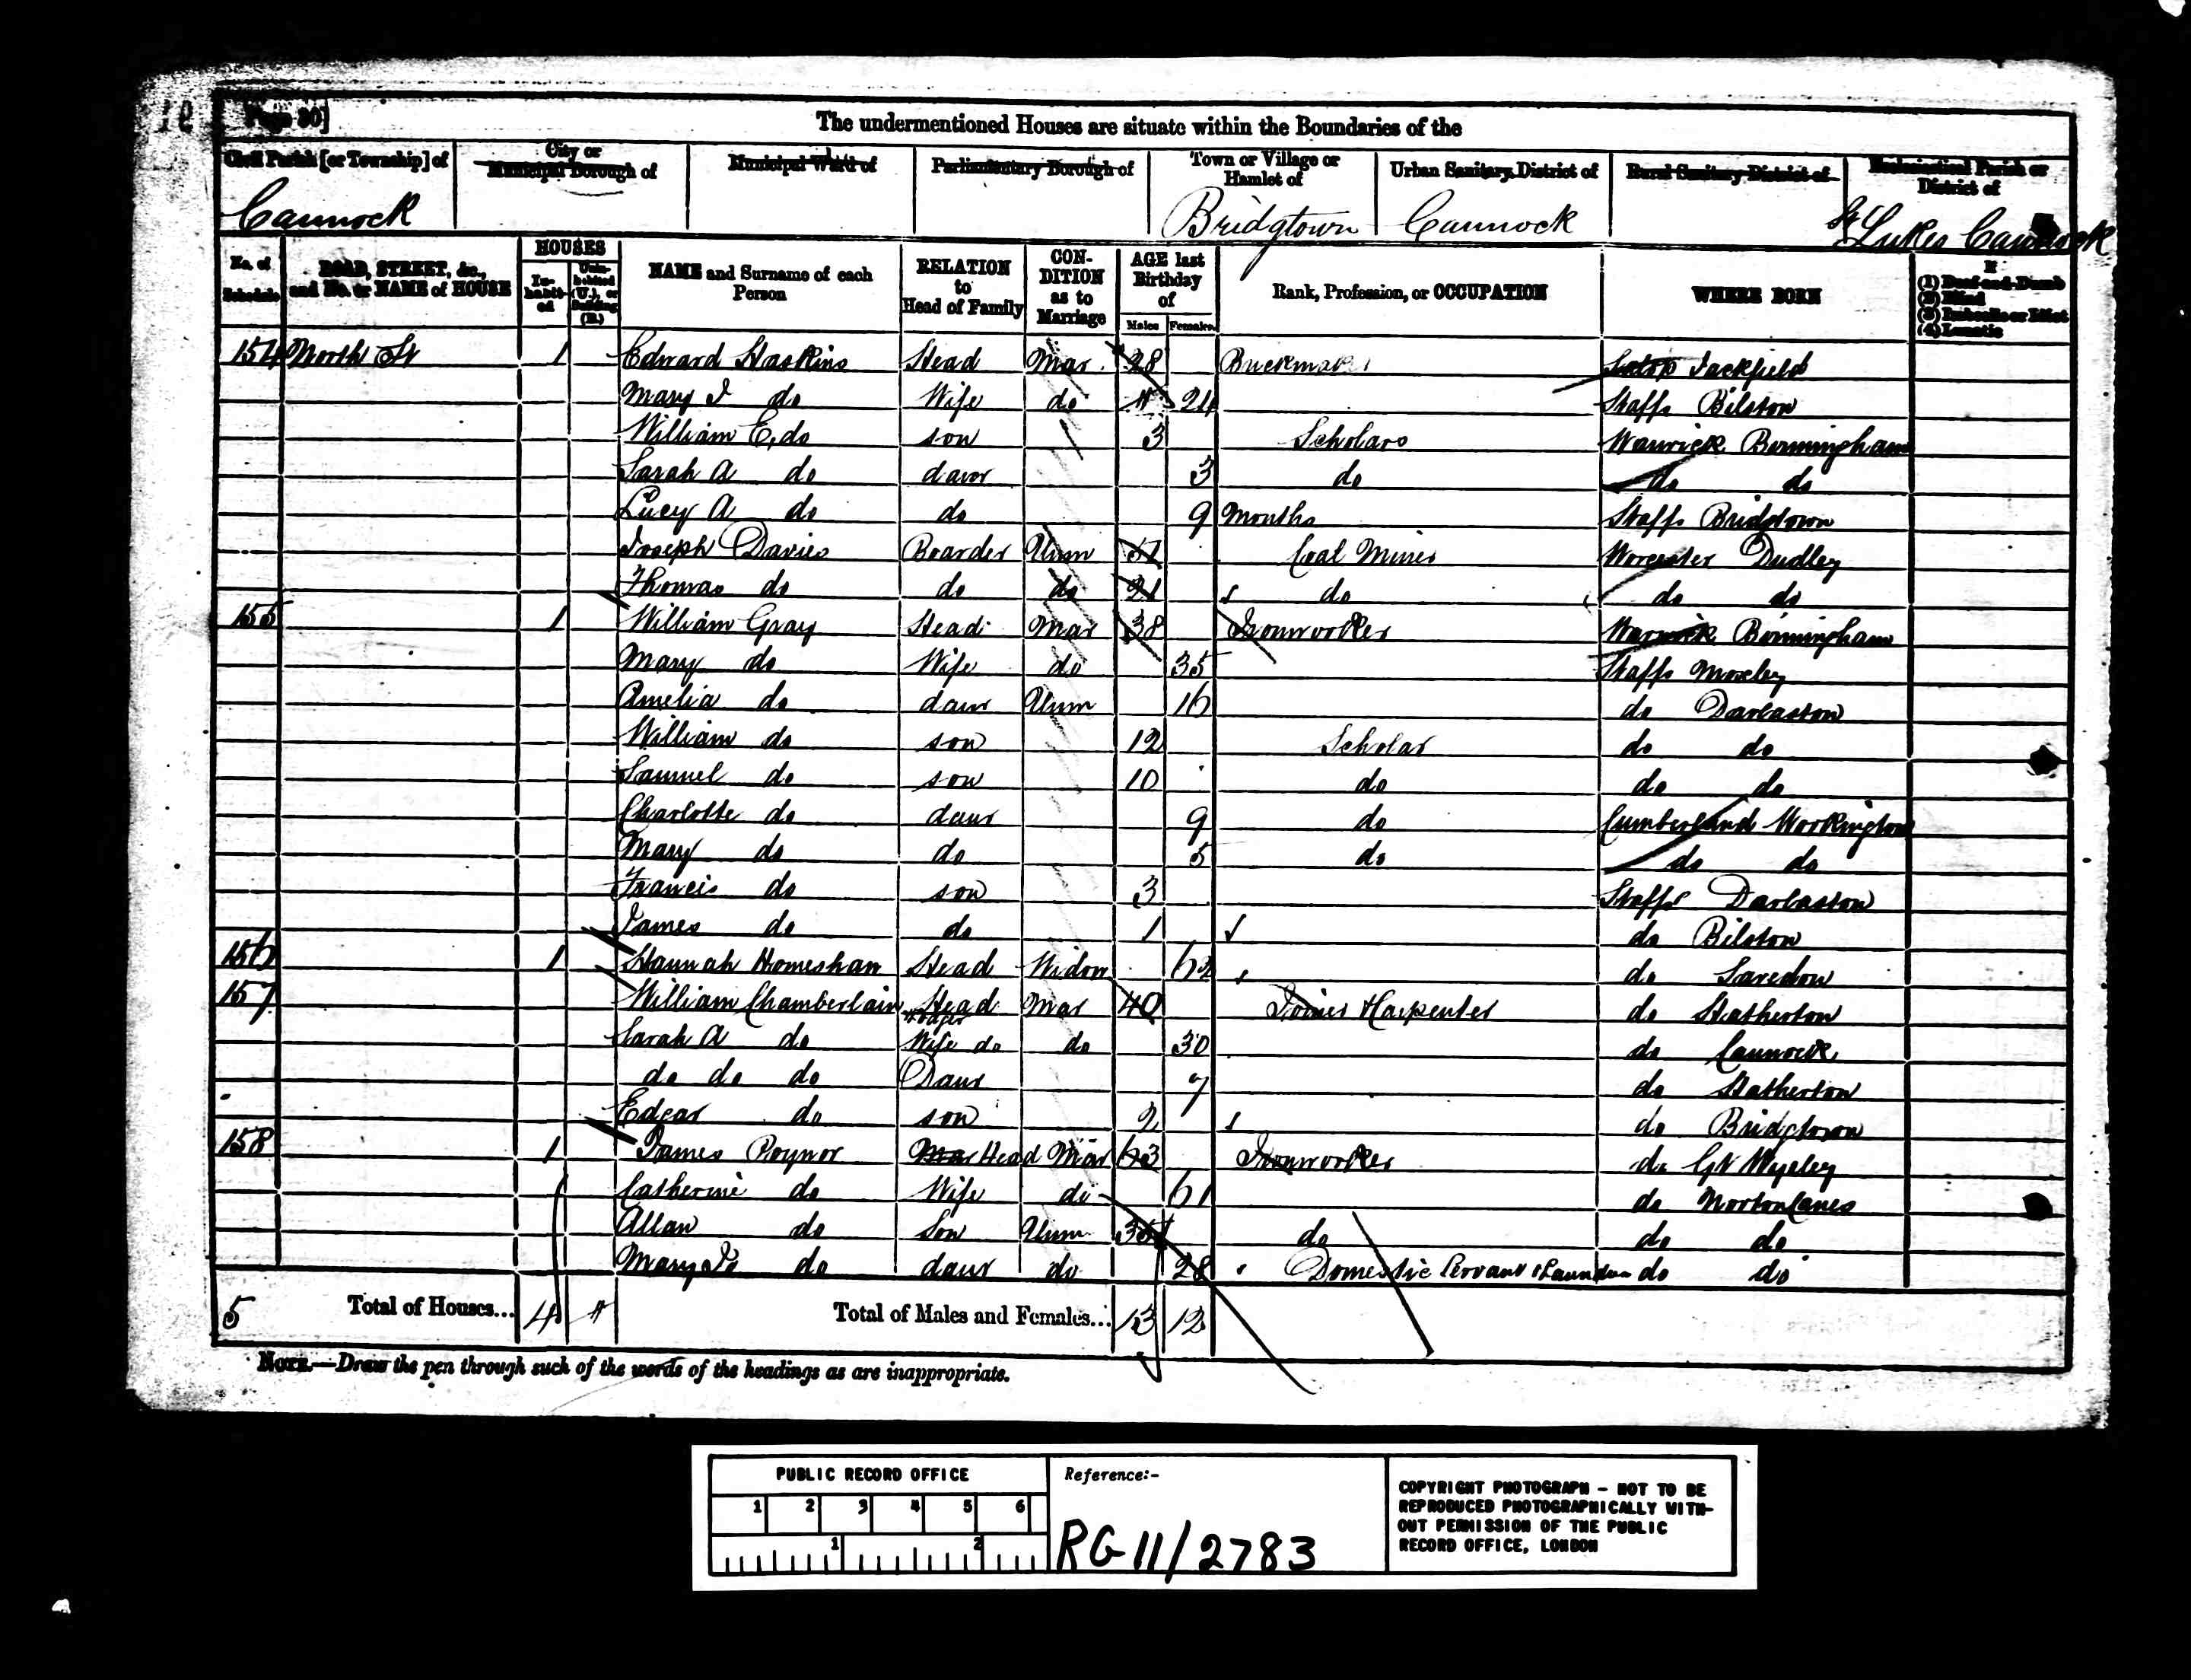 Page 30]
The undermentioned Houses are situate within the Boundaries of the
Civil Parish [or Township] of
City or Municipal Borough of
Municipal Ward of
Parliamentary Borough of
Town or Village or Hamlet of
Urban Sanitary District of
Rural Sanitary District of
Ecclesiastical Parish or District of
Cannock Bridgtown Cannock St Lukes Cannock
No. of Schedule
ROAD, STREET, &c., and No. or NAME of HOUSE
HOUSES
In-habit-ed
Unin-habited (U.), or Building (B.)
NAME and Surname of each Person
RELATION to Head of Family
CON-DITION as to Marriage
AGE last Birthday of
Males Females
Rank, Profession, or OCCUPATION
WHERE BORN
If
(1) Deaf-and-Dumb
(2) Blind
(3) Imbecile or Idiot
(4) Lunatic
154 North St 1 Edward Haskins Head Mar 28 Salop Jackfield
Mary J do Wife do 24 Staffs Bilston
William E. do son 3 Scholars Warwick Birmingham
Sarah A do daur 3 do do do
Lucy A do do 9 Months Staffs Bridgtown
Joseph Davies Boarder Unm 51 Coal Miner Worcester Dudley
Thomas do do do 21 do do do
155 1 William Gray Head Mar 38 Ironworker Warwick Birmingham
Mary do Wife do 35 Staffs Moxley
Amelia do daur Unm 16 do Darlaston
William do son 12 Scholar do do
Samuel do son 10 do do do
Charlotte do daur 9 do Cumberland Workington
Mary do do 5 do do do
Francis do son 3 Staffs Darlaston
James do do 1 do Bilston
156 1 Hannah Homeshaw Head Widow 62 do Saredon
157 William Chamberlain Head Lodger Mar 40 Joiner & Carpenter do Hatherton
Sarah A do Wife do do 30 do Cannock
do do do Daur 7 do Hatherton
Edgar do son 2 do Bridgtown
158 1 James Poynor Mar Head Mar 63 Ironworker do Gt Wyrley
Catherine do Wife do 61 do Norton Canes
Allan do Son Unm 35 do do do
Mary J do daur do 28 Domestic Servant do do
5 Total of Houses... 4 Total of Males and Females... 13 12
NOTE.—Draw the pen through such of the words of the headings as are inappropriate.
PUBLIC RECORD OFFICE
1 2 3 4 5 6
1 2
Reference:-
RG 11/2783
COPYRIGHT PHOTOGRAPH – NOT TO BE
REPRODUCED PHOTOGRAPHICALLY WITH-
OUT PERMISSION OF THE PUBLIC
RECORD OFFICE, LONDON